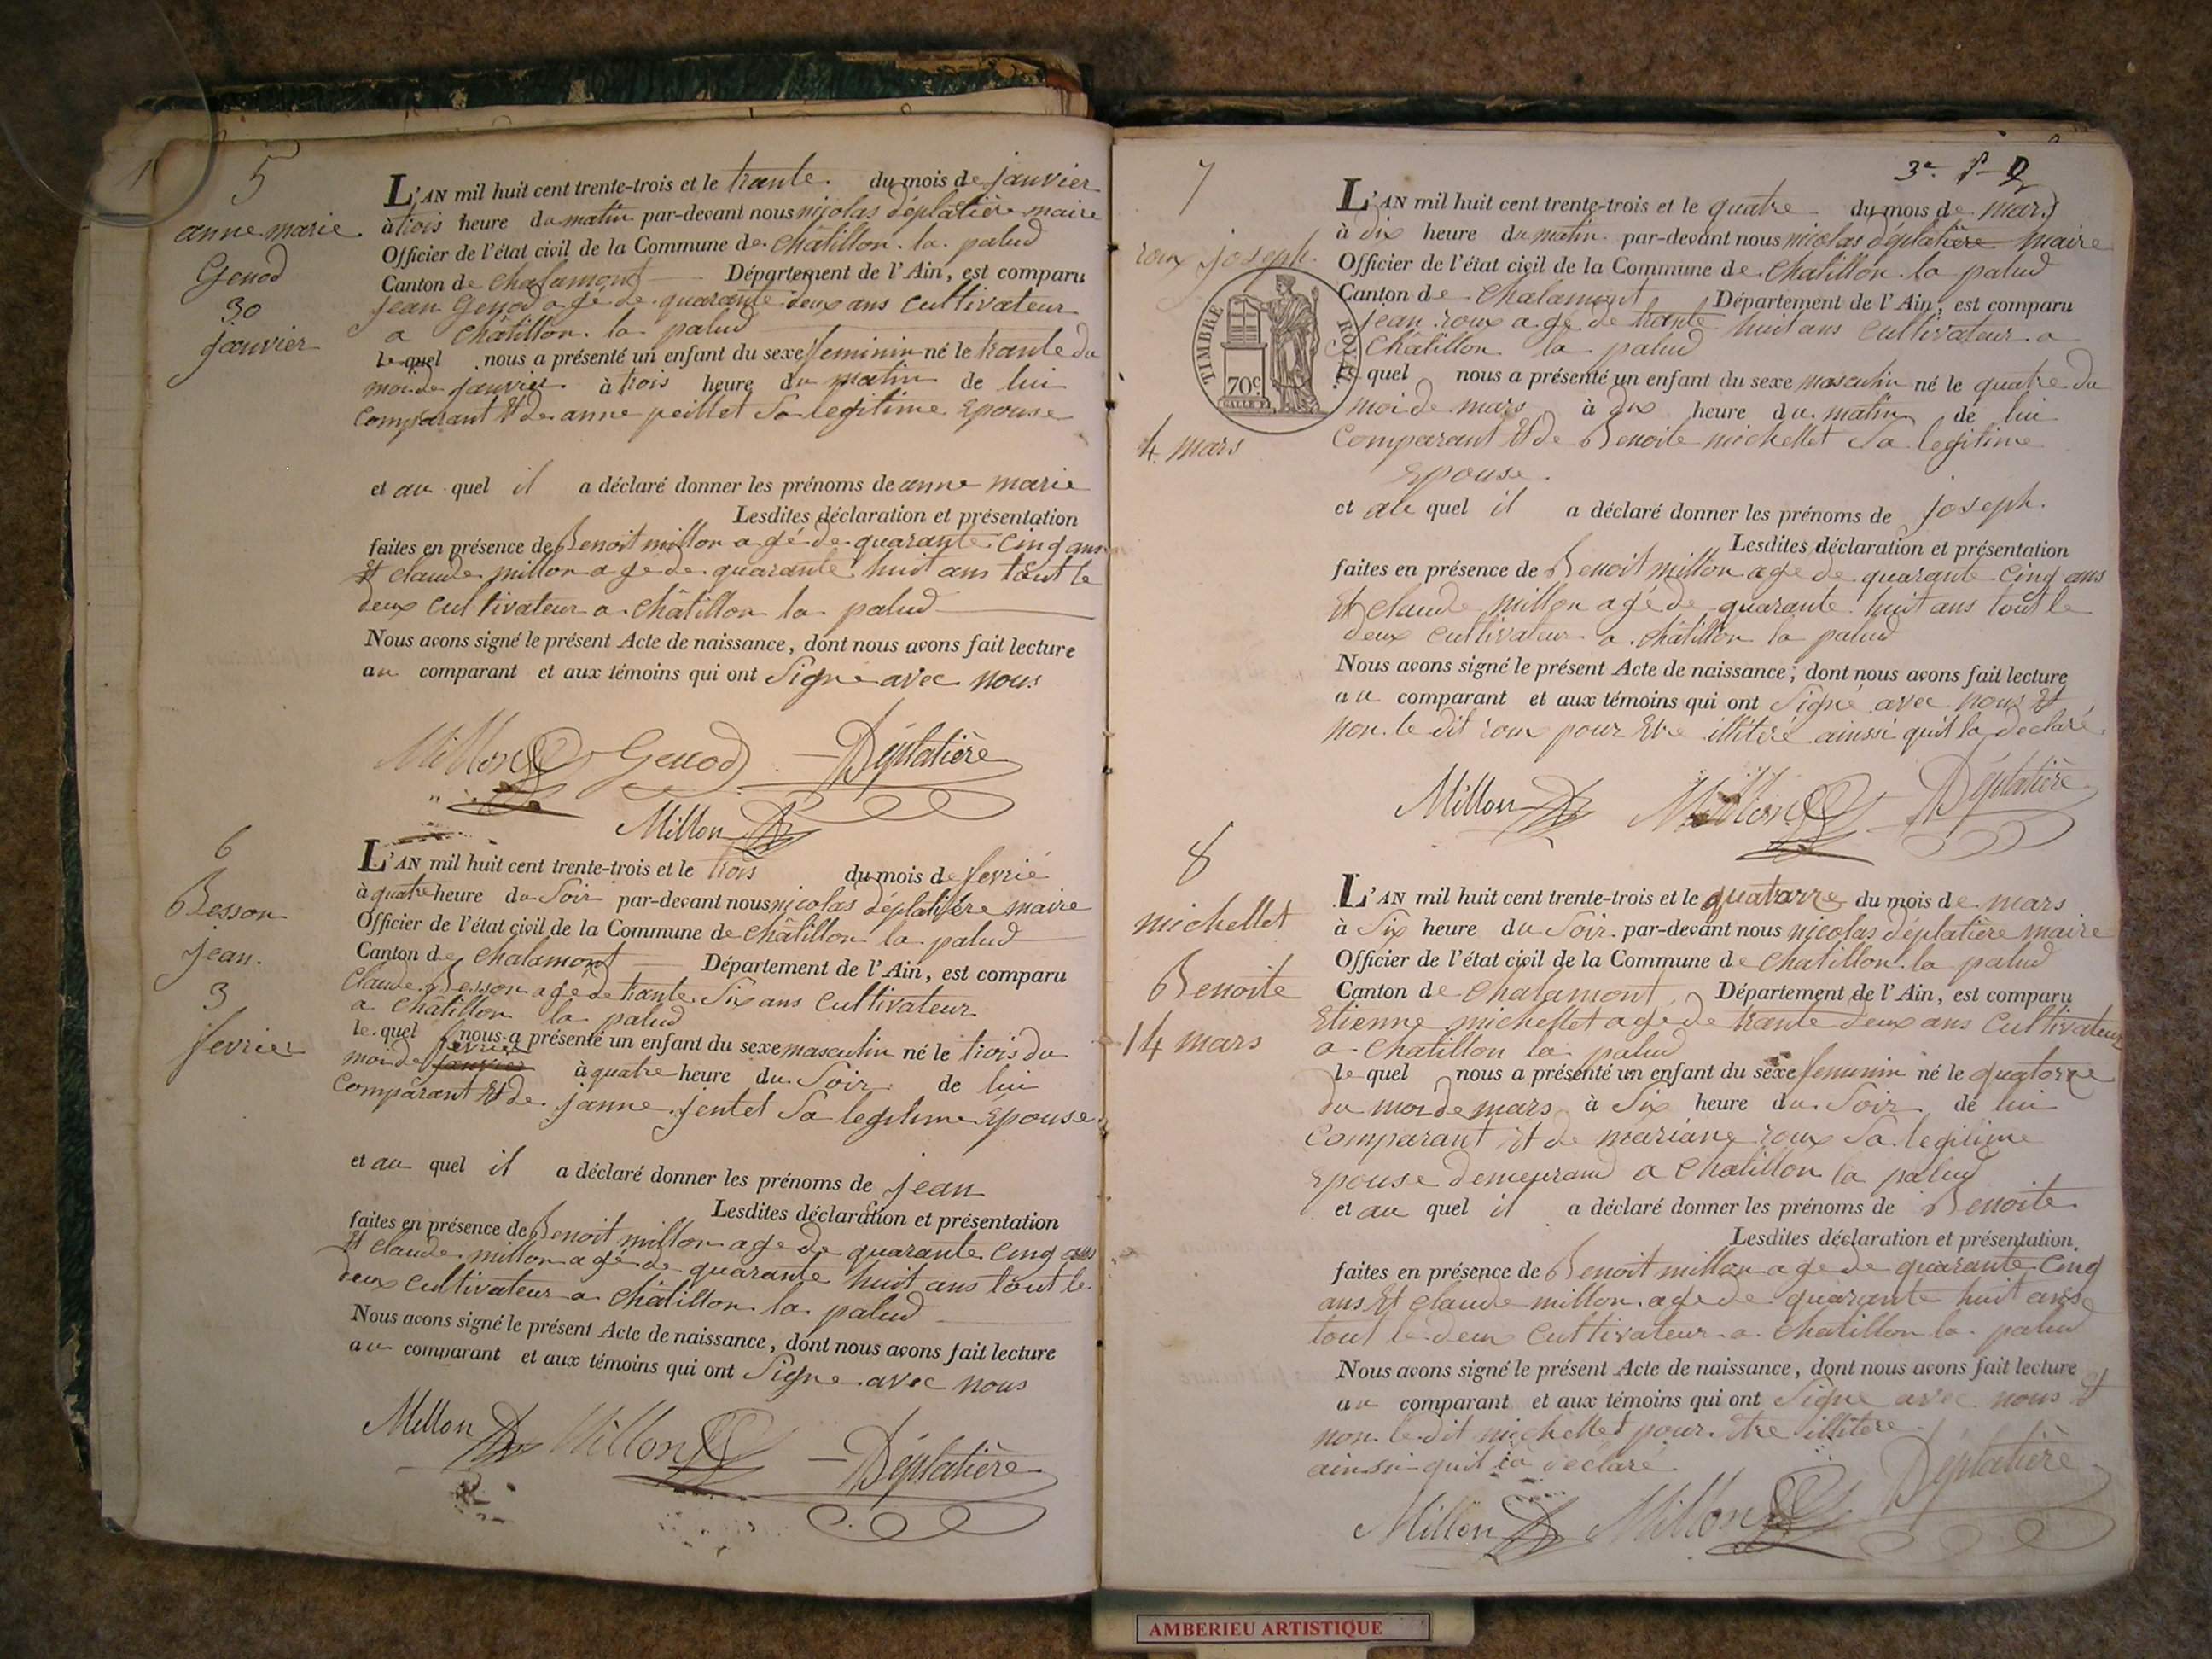 5
anne marie
Genod
30
janvier
L'AN mil huit cent trente-trois et le trante du mois de janvier
à trois heure du matin par-devant nous nicolas déplatière maire
Officier de l'état civil de la Commune de châtillon la palud
Canton de chalamont Département de l'Ain, est comparu
jean Genod agé de quarante deux ans cultivateur
a châtillon la palud
le quel nous a présenté un enfant du sexe feminin né le trante du
moi de janvier à trois heure du matin de lui
comparant Et de anne peillet Sa legitime Epouse
et au quel il a déclaré donner les prénoms de anne marie
Lesdites déclaration et présentation
faites en présence de Benoit millon agé de quarante cinq ans
Et claude millon age de quarante huit ans tout le
deux cultivateur a châtillon la palud
Nous avons signé le présent Acte de naissance, dont nous avons fait lecture
au comparant et aux témoins qui ont Signe avec nous
Millon Genod Déplatière
Millon
6
Besson
jean.
3
fevrier
L'AN mil huit cent trente-trois et le trois du mois de fevrié
à quatre heure du Soir par-devant nous nicolas déplatière maire
Officier de l'état civil de la Commune de châtillon la palud
Canton de chalamont Département de l'Ain, est comparu
claude Besson age de trante Six ans cultivateur
a châtillon la palud
le quel nous a présenté un enfant du sexe masculin né le trois du
fevrier
moi de janvier à quatre heure du Soir de lui
comparant Et de janne jentet Sa legitime Epouse
et au quel il a déclaré donner les prénoms de jean
Lesdites déclaration et présentation
faites en présence de Benoit millon age de quarante cinq ans
Et claude millon agé de quarante huit ans tout le
deux cultivateur a châtillon la palud
Nous avons signé le présent Acte de naissance, dont nous avons fait lecture
au comparant et aux témoins qui ont Signe avec nous
Millon Millon Déplatière
3e
7
roux joseph
TIMBRE ROYAL
70c
4 mars
L'AN mil huit cent trente-trois et le quatre du mois de mars
à dix heure du matin par-devant nous nicolas déplatière maire
Officier de l'état civil de la Commune de chatillon la palud
Canton de chalamont Département de l'Ain, est comparu
jean roux agé de trante huit ans cultivateur a
châtillon la palud
le quel nous a présenté un enfant du sexe masculin né le quatre du
moi de mars à dix heure du matin de lui
comparant Et de Benoite michellet Sa legitime
Epouse.
et au quel il a déclaré donner les prénoms de joseph.
Lesdites déclaration et présentation
faites en présence de Benoit millon age de quarante cinq ans
Et claude millon agé de quarante huit ans tout le
deux cultivateur a châtillon la palud
Nous avons signé le présent Acte de naissance, dont nous avons fait lecture
au comparant et aux témoins qui ont Signé avec nous Et
non le dit roux pour Etre illitéré ainssi quil la declaré
Millon Millon Déplatière
8
michellet
Benoite
14 mars
L'AN mil huit cent trente-trois et le quatorze du mois de mars
à Six heure du Soir par-devant nous nicolas déplatière maire
Officier de l'état civil de la Commune de chatillon la palud
Canton de chalamont Département de l'Ain, est comparu
Etienne michellet age de trante deux ans cultivateur
a chatillon la palud
le quel nous a présenté un enfant du sexe feminin né le quatorze
du moi de mars à Six heure du Soir de lui
comparant Et de mariane roux Sa legitime
Epouse demeurand a chatillon la palud
et au quel il a déclaré donner les prénoms de Benoite
Lesdites déclaration et présentation
faites en présence de Benoit millon age de quarante cinq
ans Et claude millon age de quarante huit ans
tout le deux cultivateur a chatillon la palud
Nous avons signé le présent Acte de naissance, dont nous avons fait lecture
au comparant et aux témoins qui ont Signe avec nous Et
non le dit michellet pour Etre illitere
ainssi quil la déclaré
Millon Millon Déplatière
AMBERIEU ARTISTIQUE